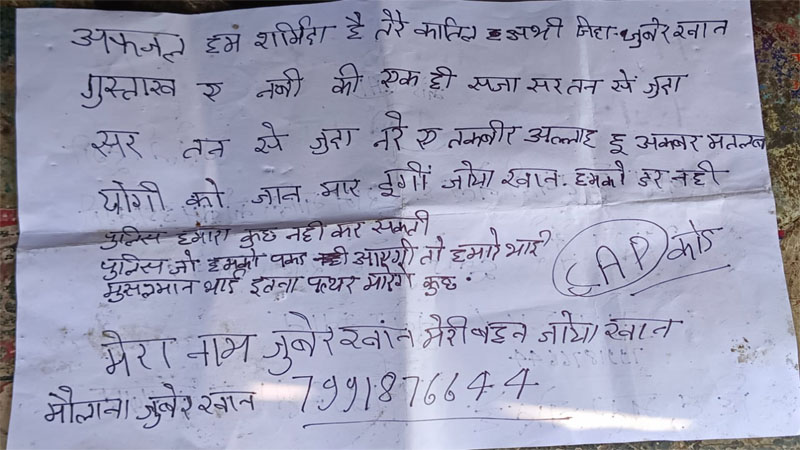 अफजल हम शर्मिंदा है तेरे कातिल अभी जिंदा-जुबेर खान
गुस्ताख ए नबी की एक ही सजा सर तन से जुदा
सर तन से जुदा नरे ए तकबीर अल्लाह हू अकबर मतलब
योगी को जान मार दूंगी जोया खान. हमको डर नही
पुलिस हमारा कुछ नही कर सकती
पुलिस जो हमको पकड़ने आएगी तो हमारे भाई
मुसलमान भाई इतना पत्थर मारेगे कुछ.
CAP कोड
मेरा नाम जुबेर खांन मेरी बहन जोया खान
मौलाना जुबेर खान 7991876644